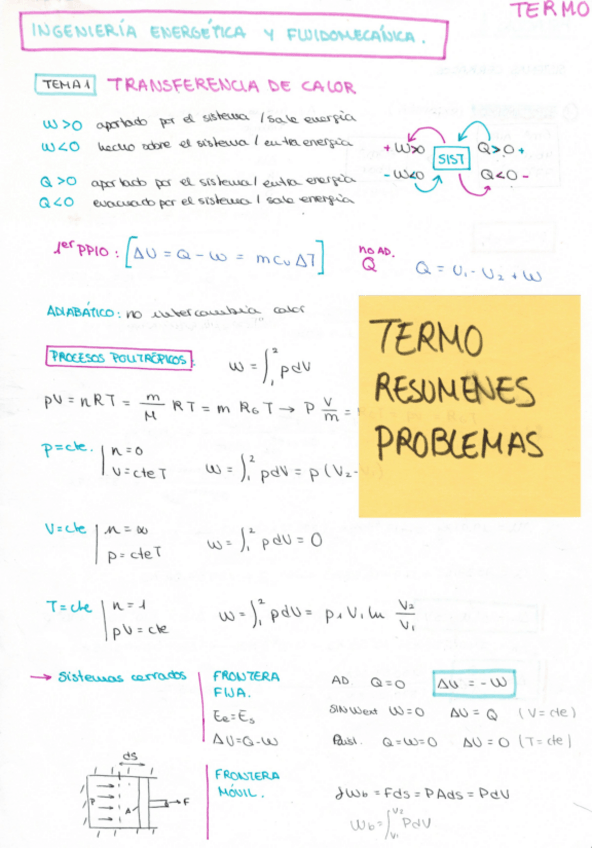 TERMO
INGENIERÍA ENERGÉTICA Y FLUIDOMECÁNICA.
TEMA 1 TRANSFERENCIA DE CALOR
W>0 aportado por el sistema / sale energía
W<0 hecho sobre el sistema / entra energía
Q>0 aportado por el sistema / entra energía
Q<0 evacuado por el sistema / sale energía
+ W>0 SIST Q>0 +
- W<0 Q<0 -
1er PPIO: [ΔU = Q - W = m Cv ΔT]
no AD.
Q Q = U1 - U2 + W
ADIABÁTICO: no intercambia calor
PROCESOS POLITRÓPICOS: W = ∫₁² p dV
pV = nRT = m/M RT = m RG T → P V/m =
p=cte. n=0
V=cte T W = ∫₁² p dV = p (V2-
V=cte n=∞
p=cte T W = ∫₁² p dV = 0
T=cte n=1
pV=cte W = ∫₁² p dV = p1 V1 ln V2/V1
TERMO
RESUMENES
PROBLEMAS
→ Sistemas cerrados FRONTERA FIJA.
Ee = Es
ΔU=Q-W
AD Q=0 ΔU = -W
SIN Wext W=0 ΔU = Q (V=cte)
Q=W=0 ΔU = 0 (T=cte)
FRONTERA MÓVIL.
ds
P A F
δWb = Fds = PAds = PdV
Wb = ∫V1 V2 PdV